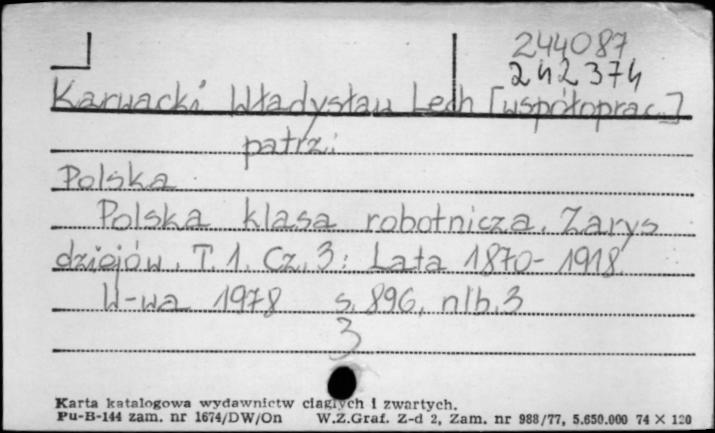 244087
242374
Karwacki Władysław Lech [współoprac.]
patrz:
Polska
Polska klasa robotnicza. Zarys
dziejów. T. 1. Cz. 3: Lata 1870-1918
W-wa 1978 s. 896, nlb. 3
3
Karta katalogowa wydawnictw ciągłych i zwartych.
Pu-B-144 zam. nr 1674/DW/On W.Z.Graf. Z-d 2, Zam. nr 988/77, 5.650.000 74 × 120